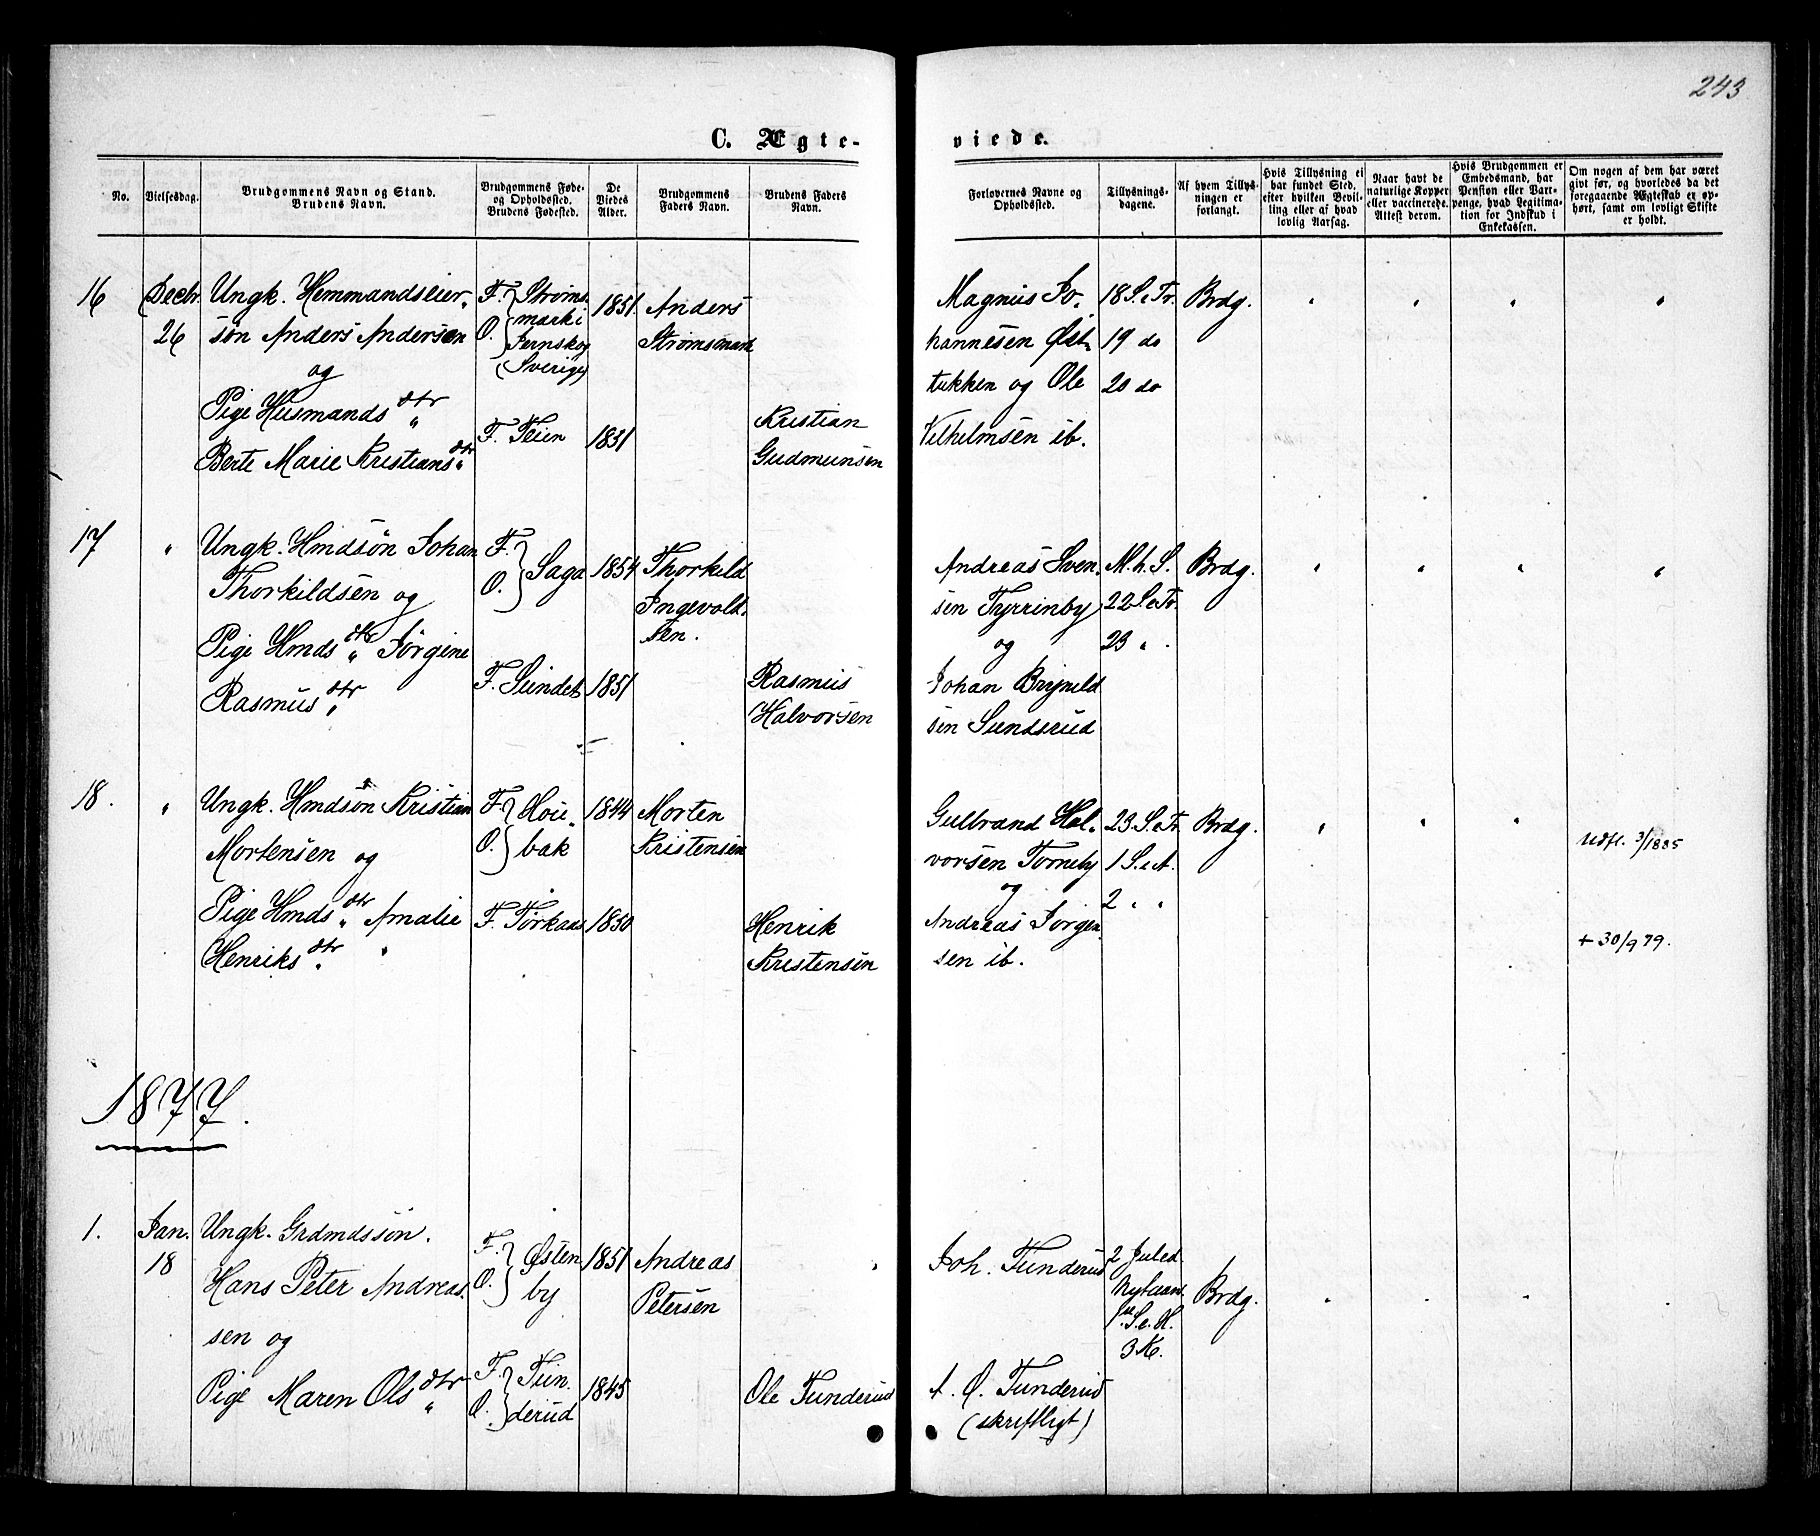 243
C. Ægteviede.
No.
Vielsesdag.
Brudgommens Navn og Stand.
Brudens Navn.
Brudgommens Føde-
og Opholdssted.
Brudens Fødested.
De
Viedes
Alder.
Brudgommens
Faders Navn.
Brudens Faders
Navn.
Forlovernes Navne og
Opholdssted.
Tillysnings-
dagene.
Af hvem Tillys-
ningen er
forlangt.
Hvis Tillysning ei
har fundet Sted,
efter hvilken Bevil-
ling eller af hvad
lovlig Aarsag.
Naar havt de
naturlige Kopper
eller vaccinerede.
Attest derom.
Hvis Brudgommen er
Embedsmand, har
Pension eller Vart-
penge, hvad Legitima-
tion for Indskud i
Enkekassen.
Om nogen af dem har været
gift før, og hvorledes da det
foregaaende Ægteskab er op-
hørt, samt om lovligt Skifte
er holdt.
16
Decbr.
26
Ungk. Hemmandseier-
søn Anders Andersen
og
Pige Husmandsdtr
Berte Marie Kristiansdtr
F. O. Strøms-
mark i
Jernskog
(Sverige)
F. Teien
1851.
1831
Anders
Strømsmark
Kristian
Gudmunsen
Magnus Jo-
hannesen Øst-
tukken og Ole
Vilhelmsen ib.
18 S. e. Tr.
19 do
20 do
Brdg.
17
"
Ungk. Hmdsøn Johan
Thorkildsen og
Pige Hmdsdtr Jørgine
Rasmusdtr
F. O. Saga
F. Sundet
1854
1851
Thorkild
Ingevold-
sen.
Rasmus
Halvorsen
Andreas Sven-
sen Tyrrinby
og
Johan Brynild
sen Sundsrud
M. h. S.
22 S. e. Tr.
23 "
Brdg.
18.
"
Ungk. Hmdsøn Kristian
Mortensen og
Pige Hmdsdtr Amalie
Henriksdtr
F. O. Hou-
bak
F. Torkaas
1844
1850
Morten
Kristensen
Henrik
Kristensen
Gulbrand Hal-
vorsen Torneby
og
Andreas Jørgen-
sen ib.
23. S. e. Tr.
1 S. i A.
2 " "
Brdg.
Udfl. 3/1885
+ 30/9 79.
1877.
1.
Jan.
18
Ungk. Grdmdssøn.
Hans Peter Andreas-
sen og
Pige Maren Olsdtr
F. O. Østen
by
F. O. Tun-
derud
1851
1845
Andreas
Petersen
Ole Tunderud
Joh. Tunderud
A. O. Tunderud
(skriftligt)
2 Juled.
Nytaars
S. e. H.
3 K.
Brdg.